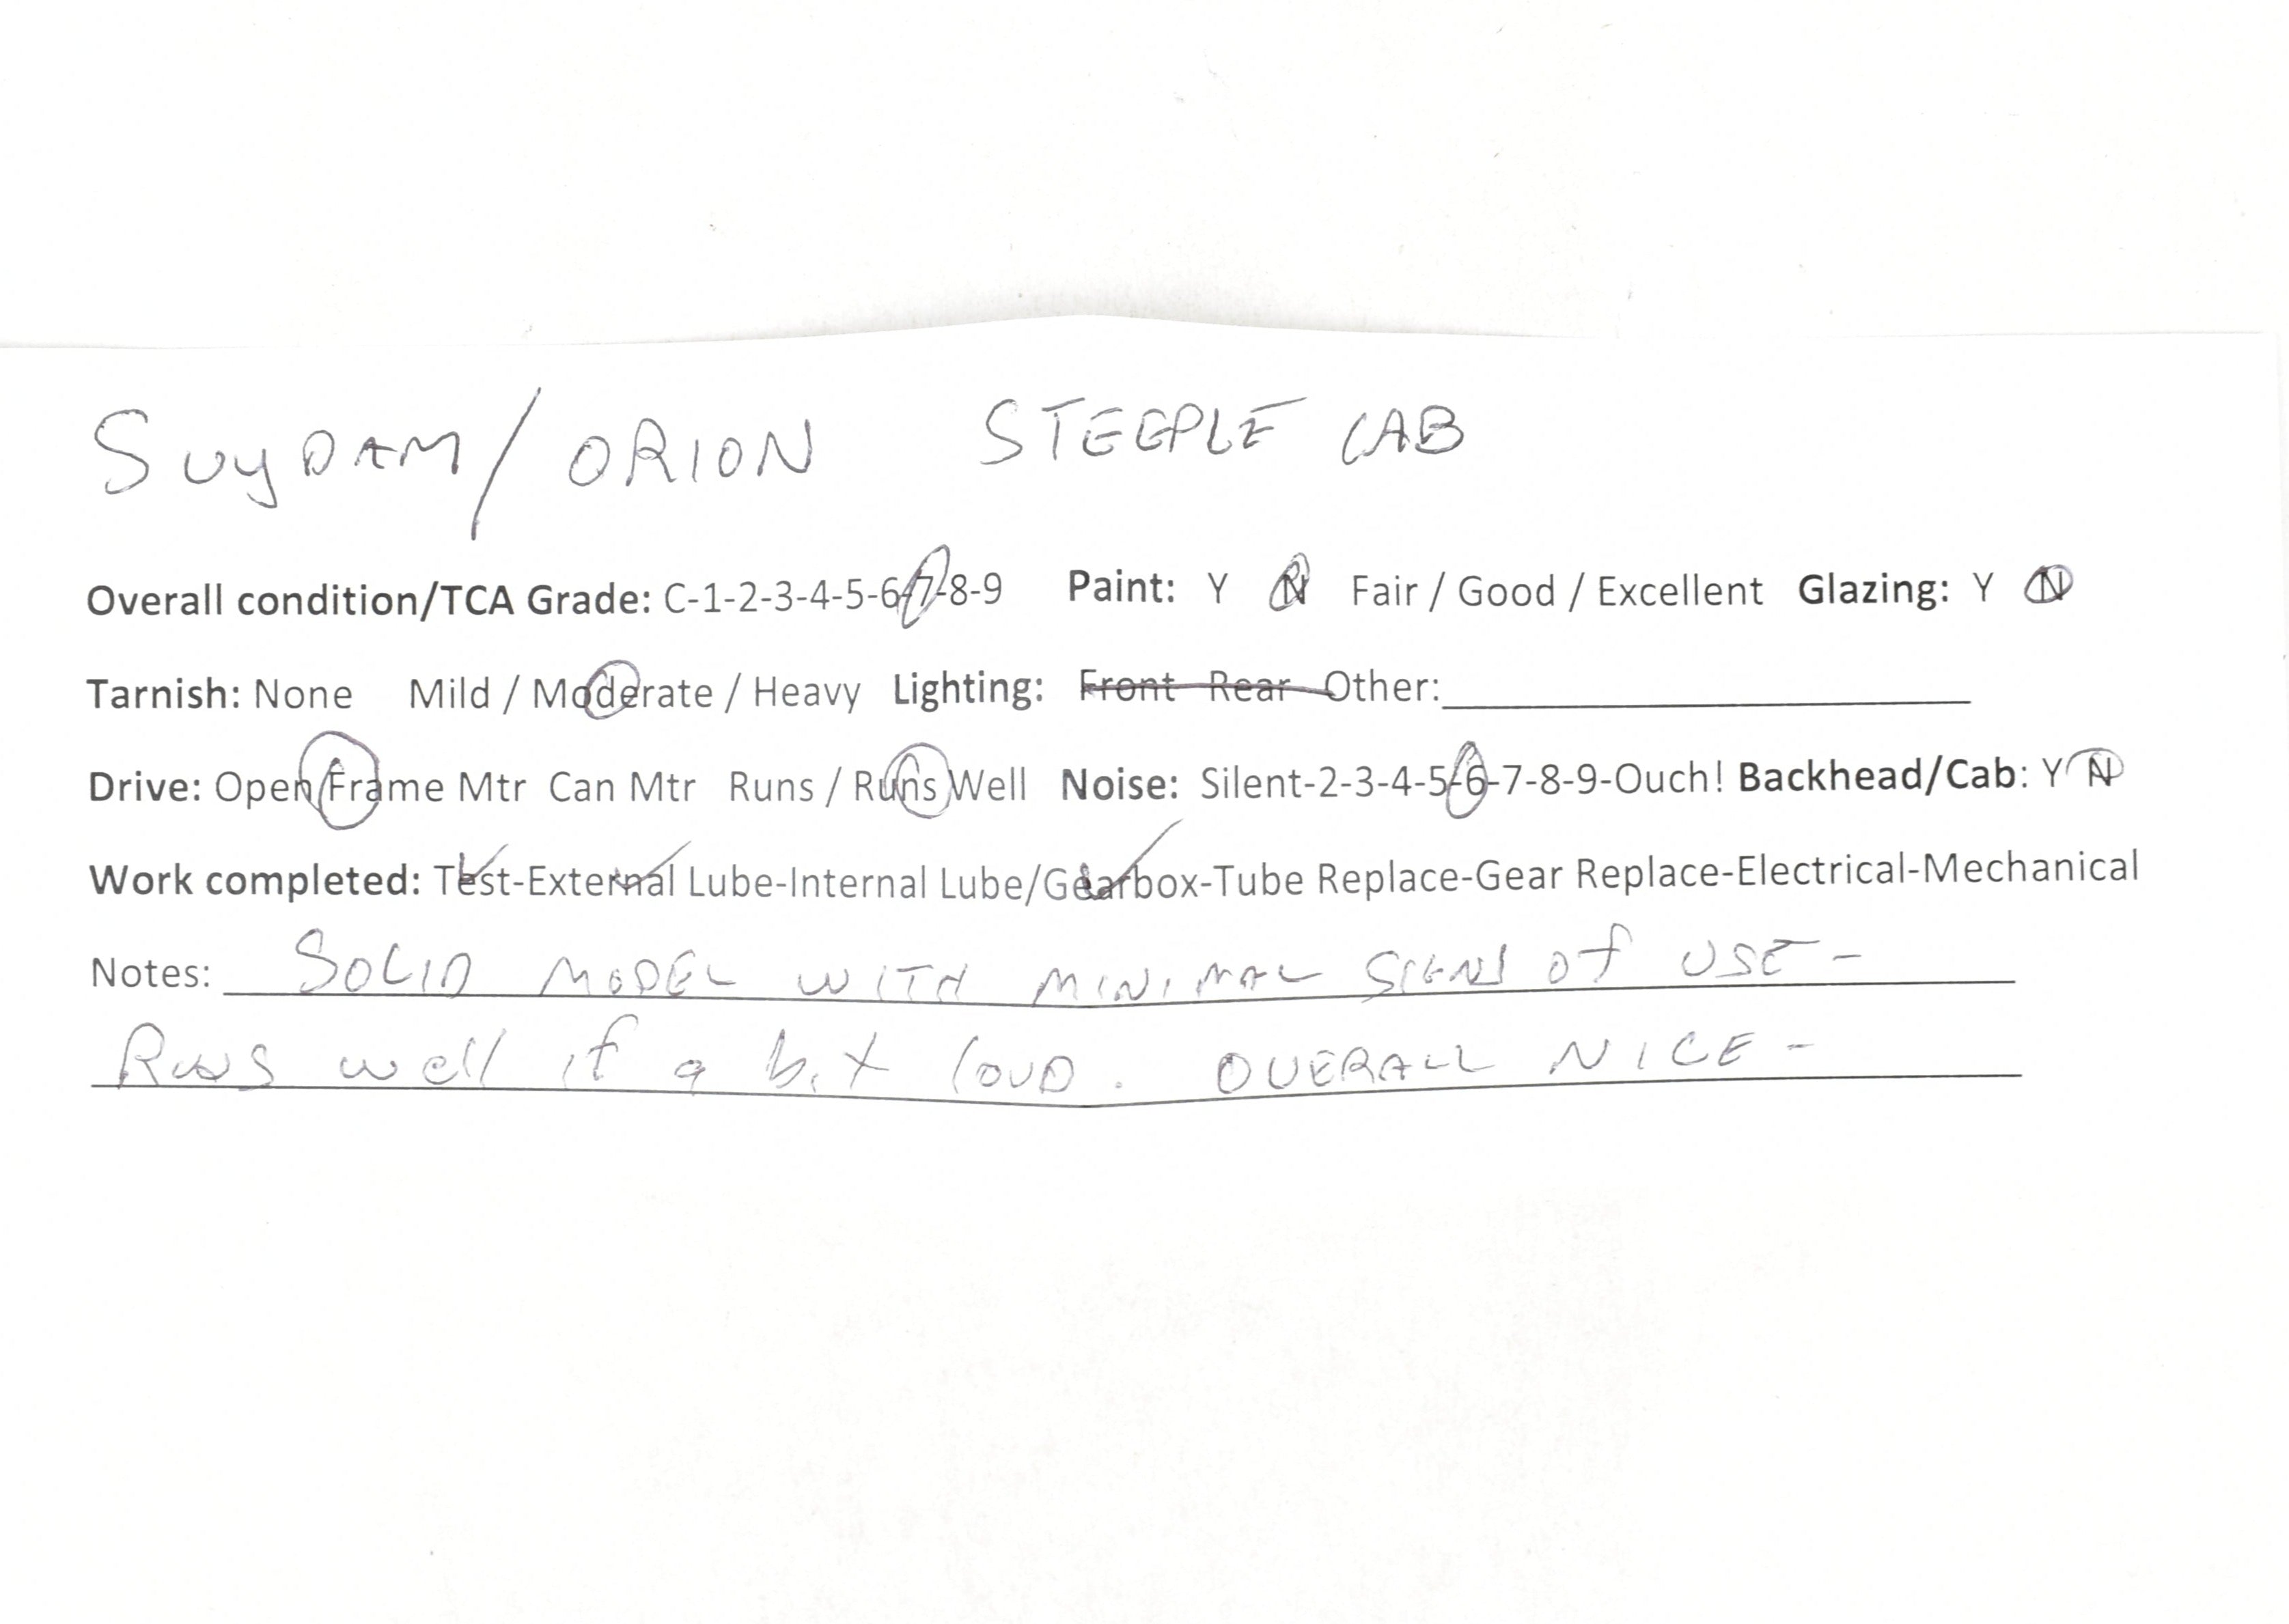 SUYDAM / ORION STEEPLE CAB
Overall condition/TCA Grade: C-1-2-3-4-5-6-7-8-9 Paint: Y N Fair / Good / Excellent Glazing: Y N
Tarnish: None Mild / Moderate / Heavy Lighting: Front Rear Other:
Drive: Open Frame Mtr Can Mtr Runs / Runs Well Noise: Silent-2-3-4-5-6-7-8-9-Ouch! Backhead/Cab: Y N
Work completed: Test-External Lube-Internal Lube/Gearbox-Tube Replace-Gear Replace-Electrical-Mechanical
Notes: SOLID MODEL WITH MINIMAL SIGNS OF USE -
RUNS well if a bit LOUD. OVERALL NICE -